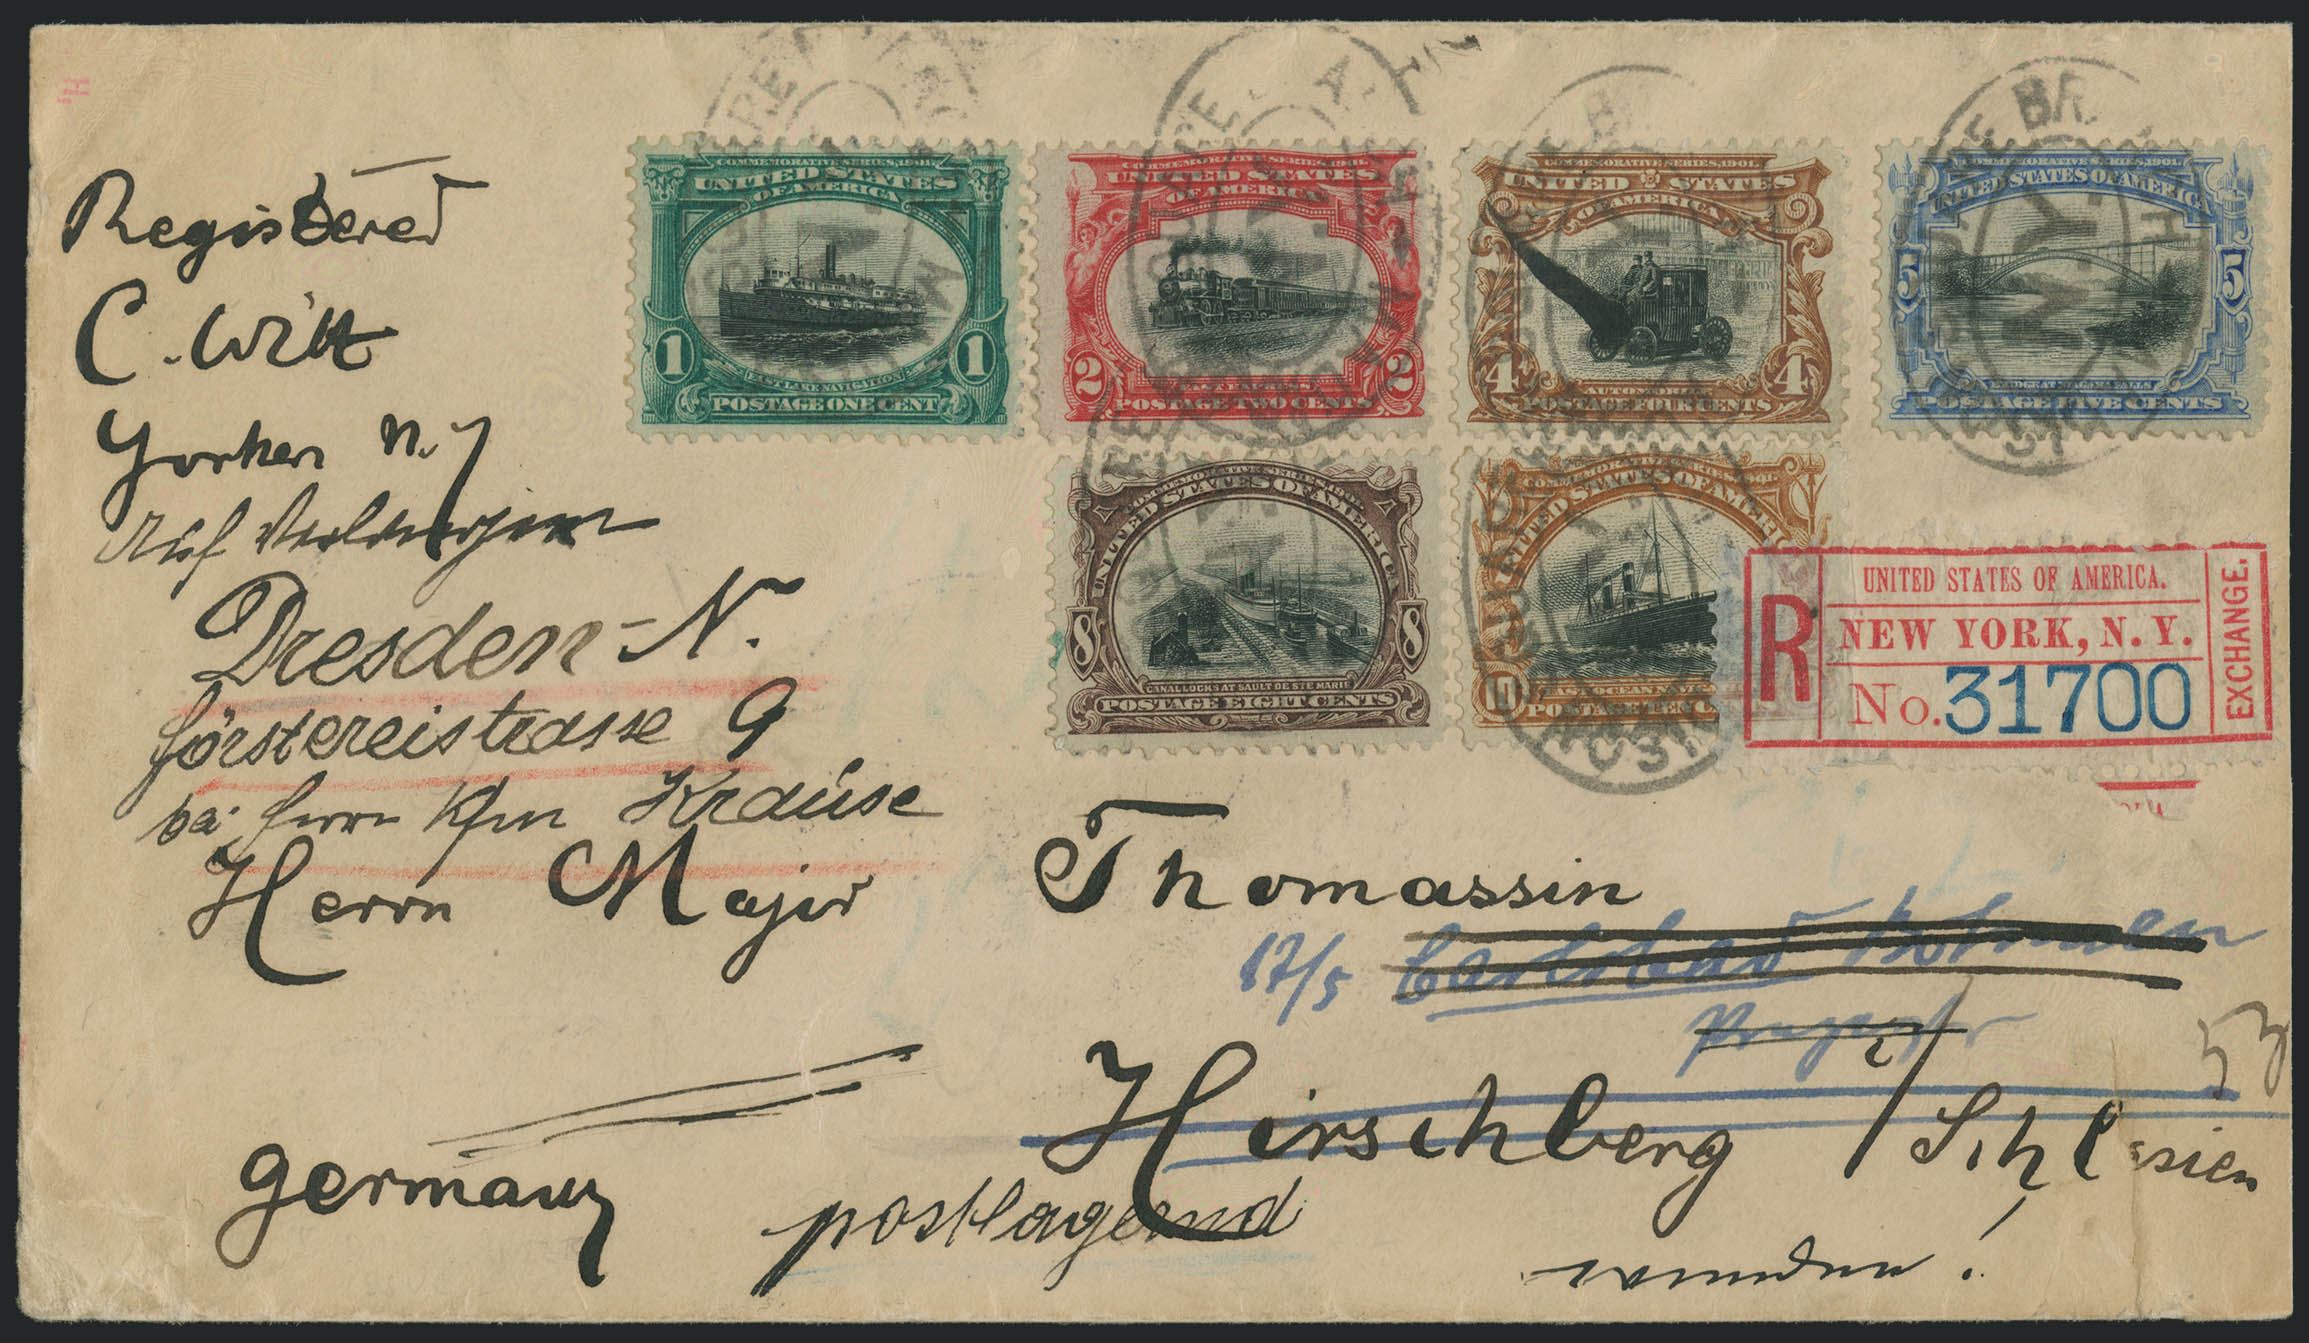 Registered
C. Witt
Yonkers N.Y
Auf Verlangen
Dresden-N.
Förstereistrasse 9
bei Herrn Kfm Krause
Herrn Major Thomassin
17/5 Carlsbad Böhmen
Hirschberg / Schlesien
53
Germany
postlagernd
wenden!
COMMEMORATIVE SERIES, 1901.
UNITED STATES
OF AMERICA
1 1
FAST LAKE NAVIGATION
POSTAGE ONE CENT
COMMEMORATIVE SERIES, 1901.
UNITED STATES
OF AMERICA
2 2
FAST EXPRESS
POSTAGE TWO CENTS
COMMEMORATIVE SERIES, 1901.
UNITED STATES
OF AMERICA
4 4
AUTOMOBILE
POSTAGE FOUR CENTS
COMMEMORATIVE SERIES, 1901.
UNITED STATES OF AMERICA
5 5
BRIDGE AT NIAGARA FALLS
POSTAGE FIVE CENTS
COMMEMORATIVE SERIES, 1901.
UNITED STATES OF AMERICA
8 8
CANAL LOCKS AT SAULT DE STE MARIE
POSTAGE EIGHT CENTS
COMMEMORATIVE SERIES, 1901.
UNITED STATES OF AMERIC
10
FAST OCEAN NAV
POSTAGE TEN C
R
UNITED STATES OF AMERICA.
NEW YORK, N. Y.
No. 31700
EXCHANGE.